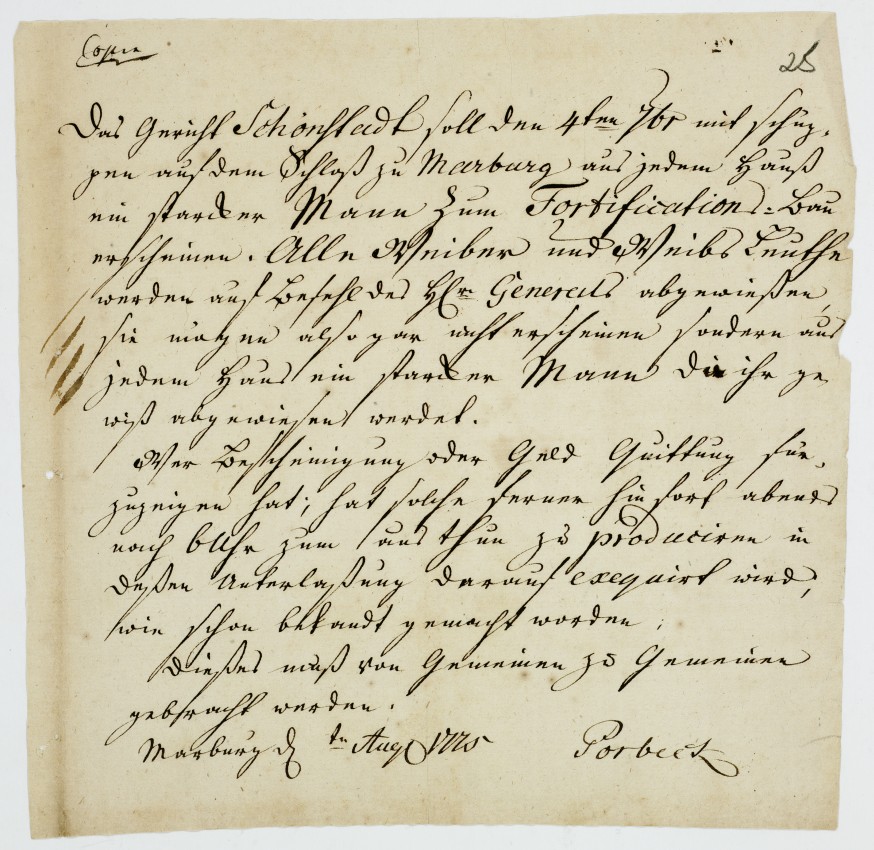 Copia
28
Das Gericht Schönstadt soll den 4ten 7br mit schup,
pen auf dem Schloß zu Marburg aus jedem Hauß
ein starcker Mann zum Fortifications-Bau
erscheinen. Alle Weiber und Weibs Leuthe
werden auf Befehl des Hl Generals abgewießen,
sie mögen also gar nicht erscheinen sondern aus
jedem Haus ein starcker Mann die ihr ge,
wiß abgewiesen werdet.
Wer Bescheinigung oder Geld Quittung für,
zuzeigen hat; hat solche ferner hin fort abends
nach 6 Uhr zum aus thun zu produciren in
deßen Unterlaßung darauf exequirt wird,
wie schon bekandt gemacht worden;
Dießes muß von Gemeinen zu Gemeinen
gebracht werden.
Marburg d tn Aug Porbeck